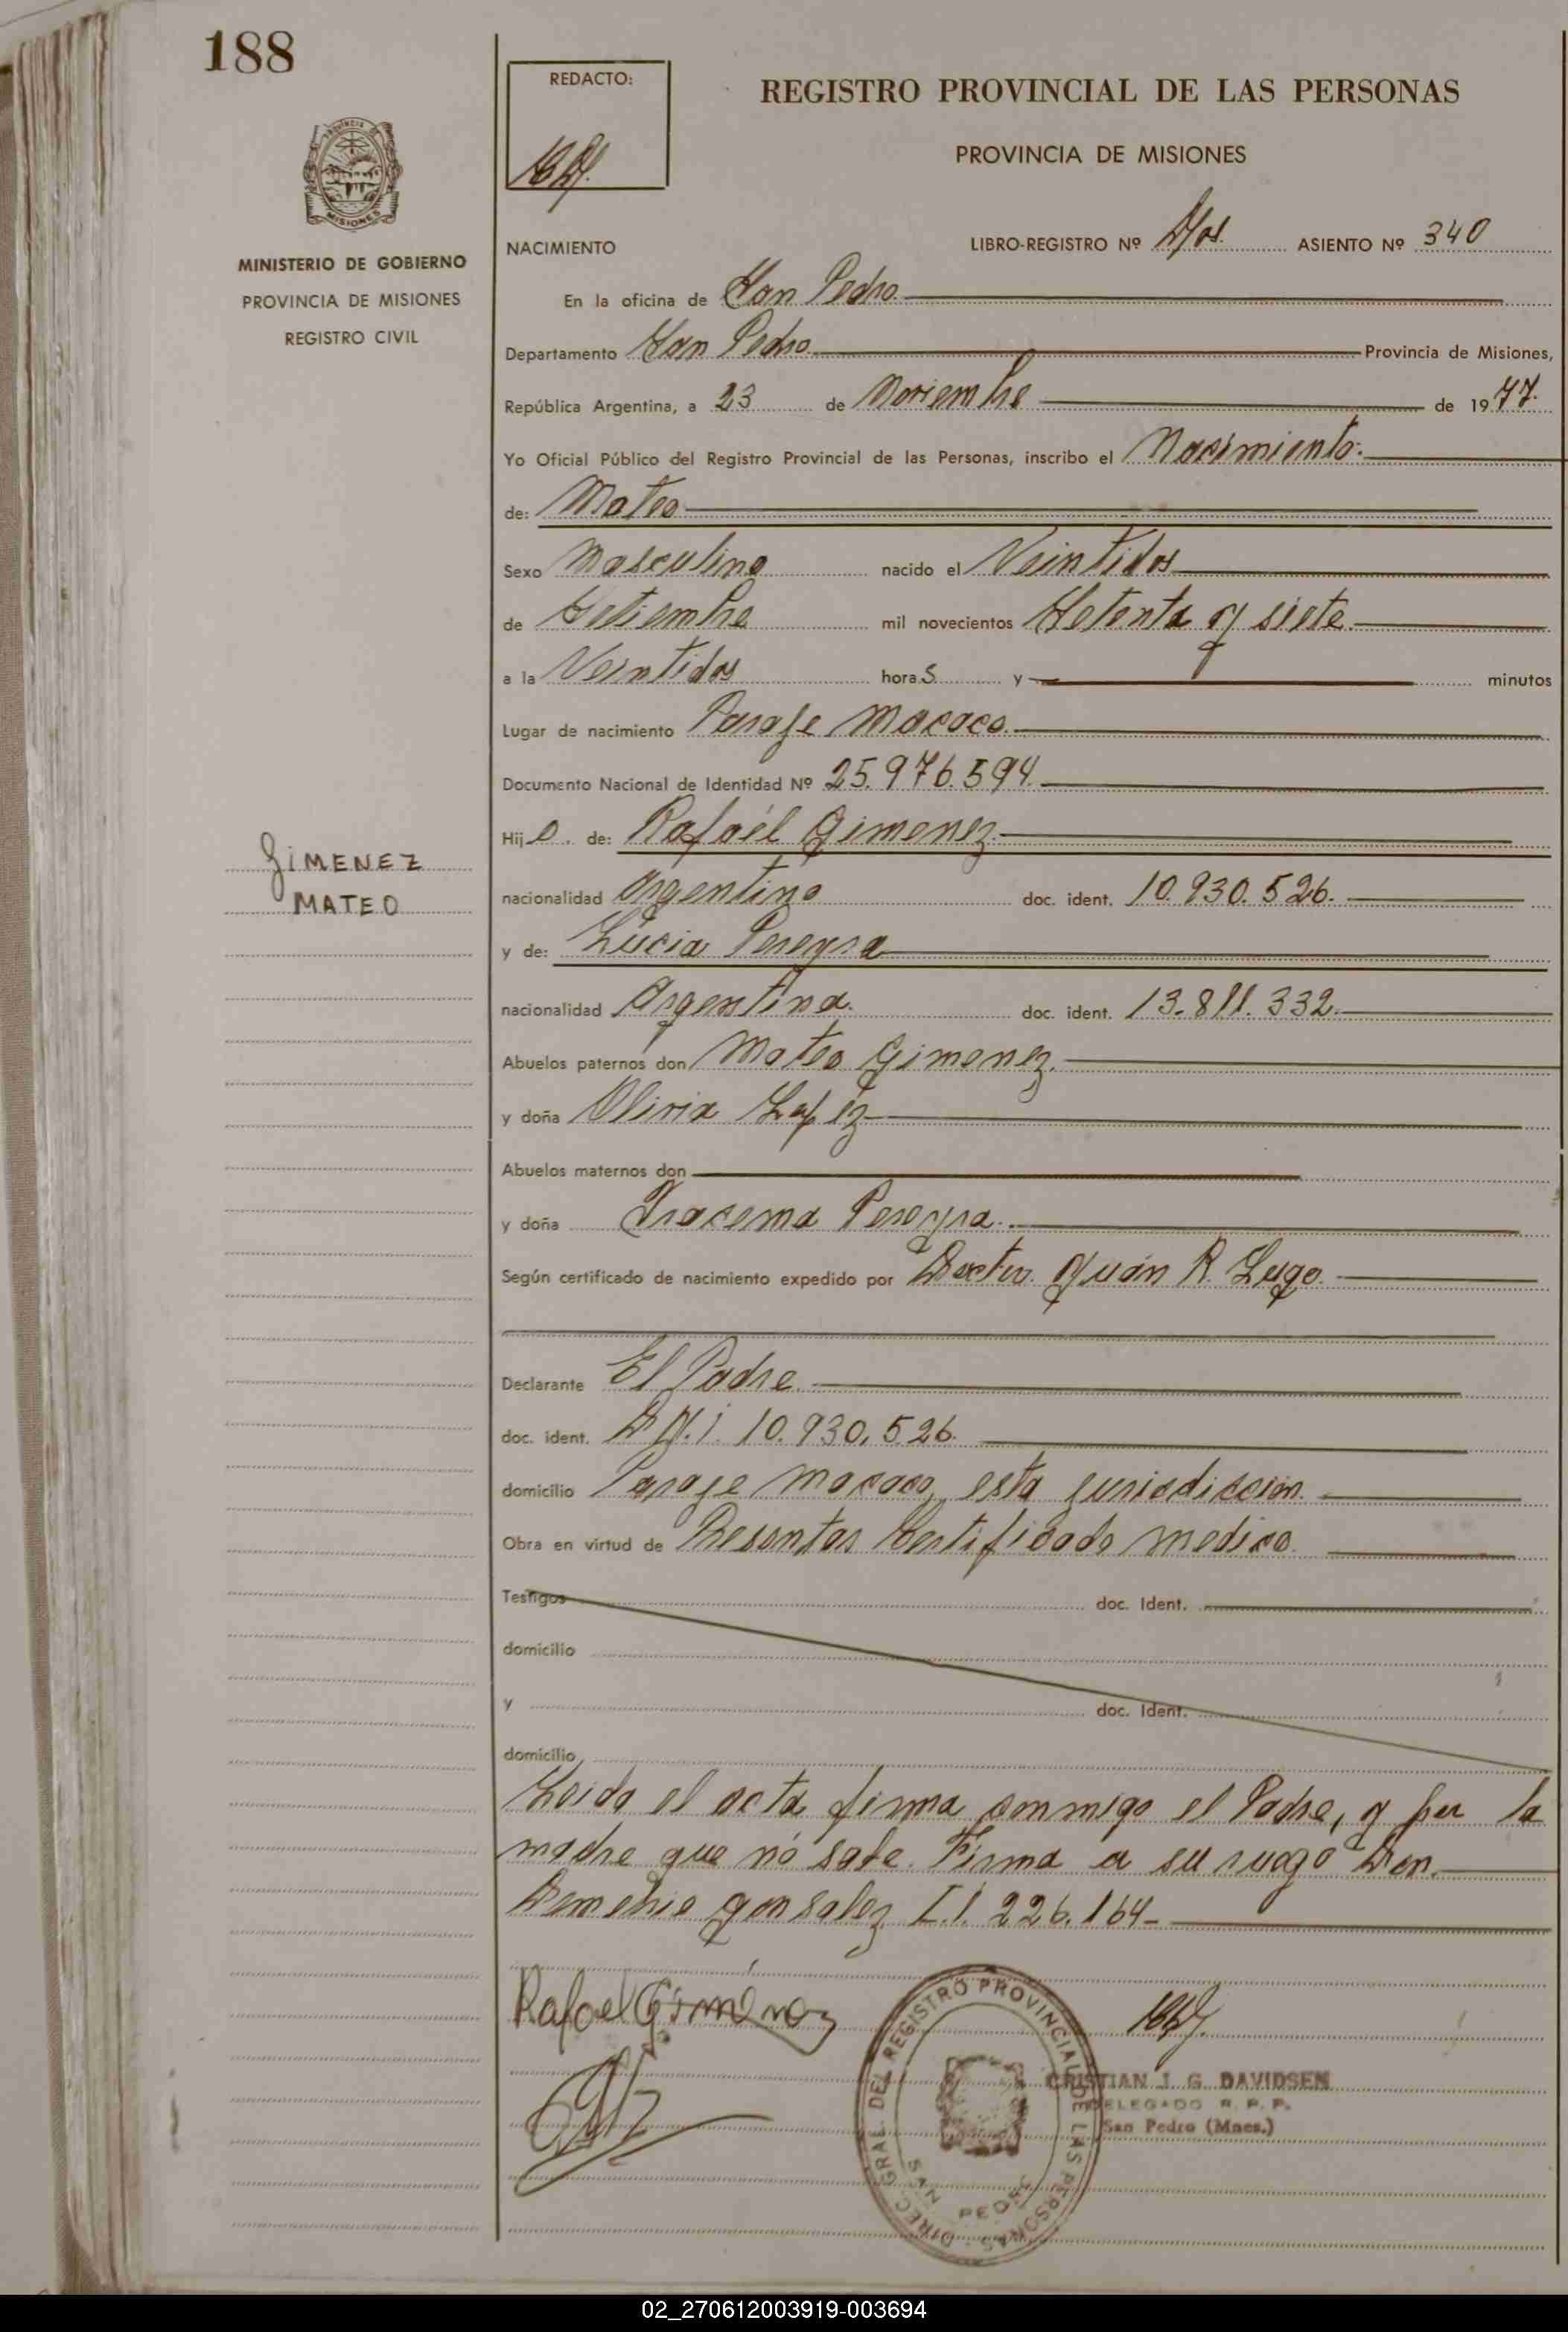 188
MISIONES
MINISTERIO DE GOBIERNO
PROVINCIA DE MISIONES
REGISTRO CIVIL
GIMENEZ
MATEO
REDACTO:
REGISTRO PROVINCIAL DE LAS PERSONAS
PROVINCIA DE MISIONES
NACIMIENTO LIBRO-REGISTRO Nº Dos. ASIENTO Nº 340
En la oficina de San Pedro
Departamento San Pedro Provincia de Misiones,
República Argentina, a 23 de Noviembre de 1977.
Yo Oficial Público del Registro Provincial de las Personas, inscribo el Nacimiento.
de: Mateo
Sexo Masculino nacido el Veintidos
de Setiembre mil novecientos Setenta y siete.
a la Veintidos horas y minutos
Lugar de nacimiento Paraje Macaco.
Documento Nacional de Identidad Nº 25.976.594.
Hijo. de: Rafaél Gimenez.
nacionalidad Argentino doc. ident. 10.930.526.
y de: Lucia Pereyra
nacionalidad Argentina. doc. ident. 13.811.332.
Abuelos paternos don Mateo Gimenez.
y doña Oliria Lopéz
Abuelos maternos don
y doña Iracema Pereyra.
Según certificado de nacimiento expedido por Doctor Juán R. Lugo.
Declarante El Padre.
doc. ident. D.N.I. 10.930.526.
domicilio Paraje Macaco, esta jurisdiccion.
Obra en virtud de Presentar Certificado medico.
Testigos doc. Ident.
domicilio
y doc. Ident.
domicilio
Leida el acta firma conmigo el Padre, y por la
madre que nó sabe. Firma a su ruego Don.
Demetrio Gonsalez I.I. 226.164-
Rafael Giménez
DIREC. GRAL. DEL REGISTRO PROVINCIAL DE LAS PERSONAS
SAN PEDRO
CRISTIAN J. G. DAVIDSEN
DELEGADO R. P. P.
San Pedro (Mnes.)
02_270612003919-003694